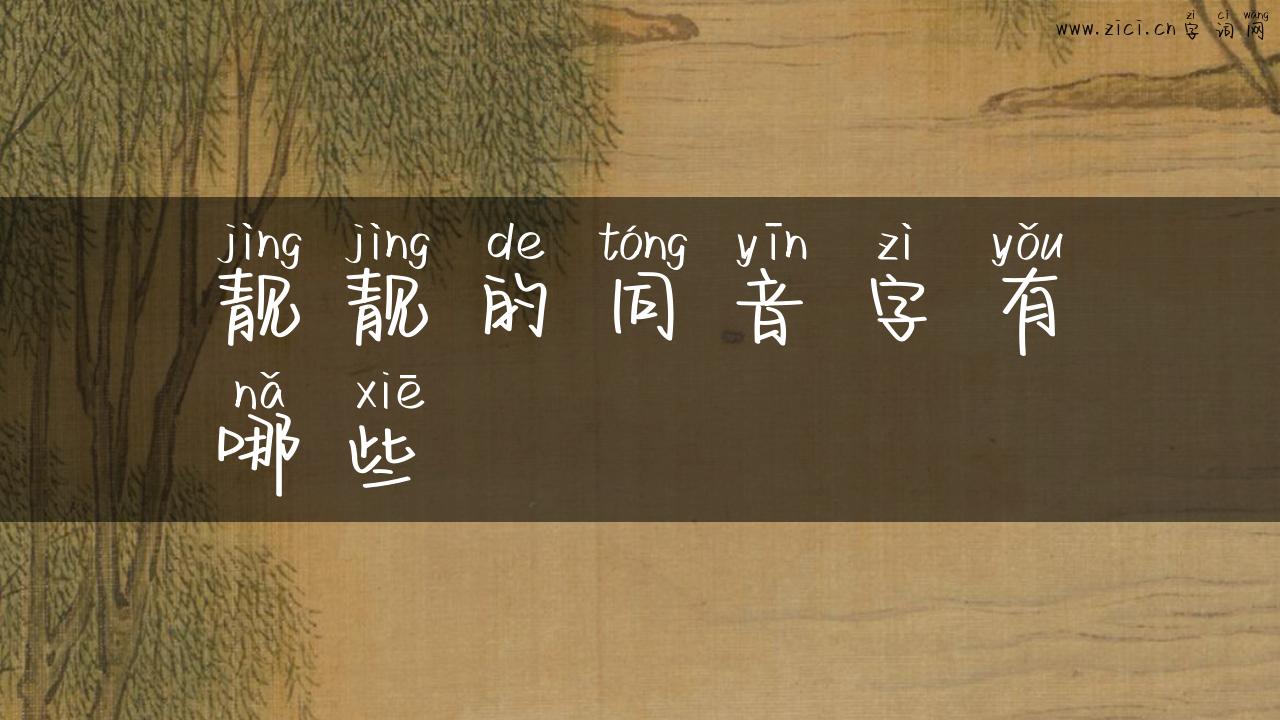 zì cí wǎng
www.zici.cn字词网
jìng jìng de tóng yīn zì yǒu
靓靓的同音字有
nǎ xiē
哪些